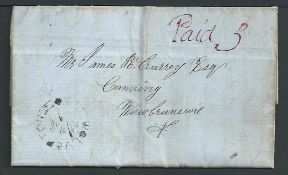 Paid 3
Mr James R Currey Esq
Canning
New Brunswic